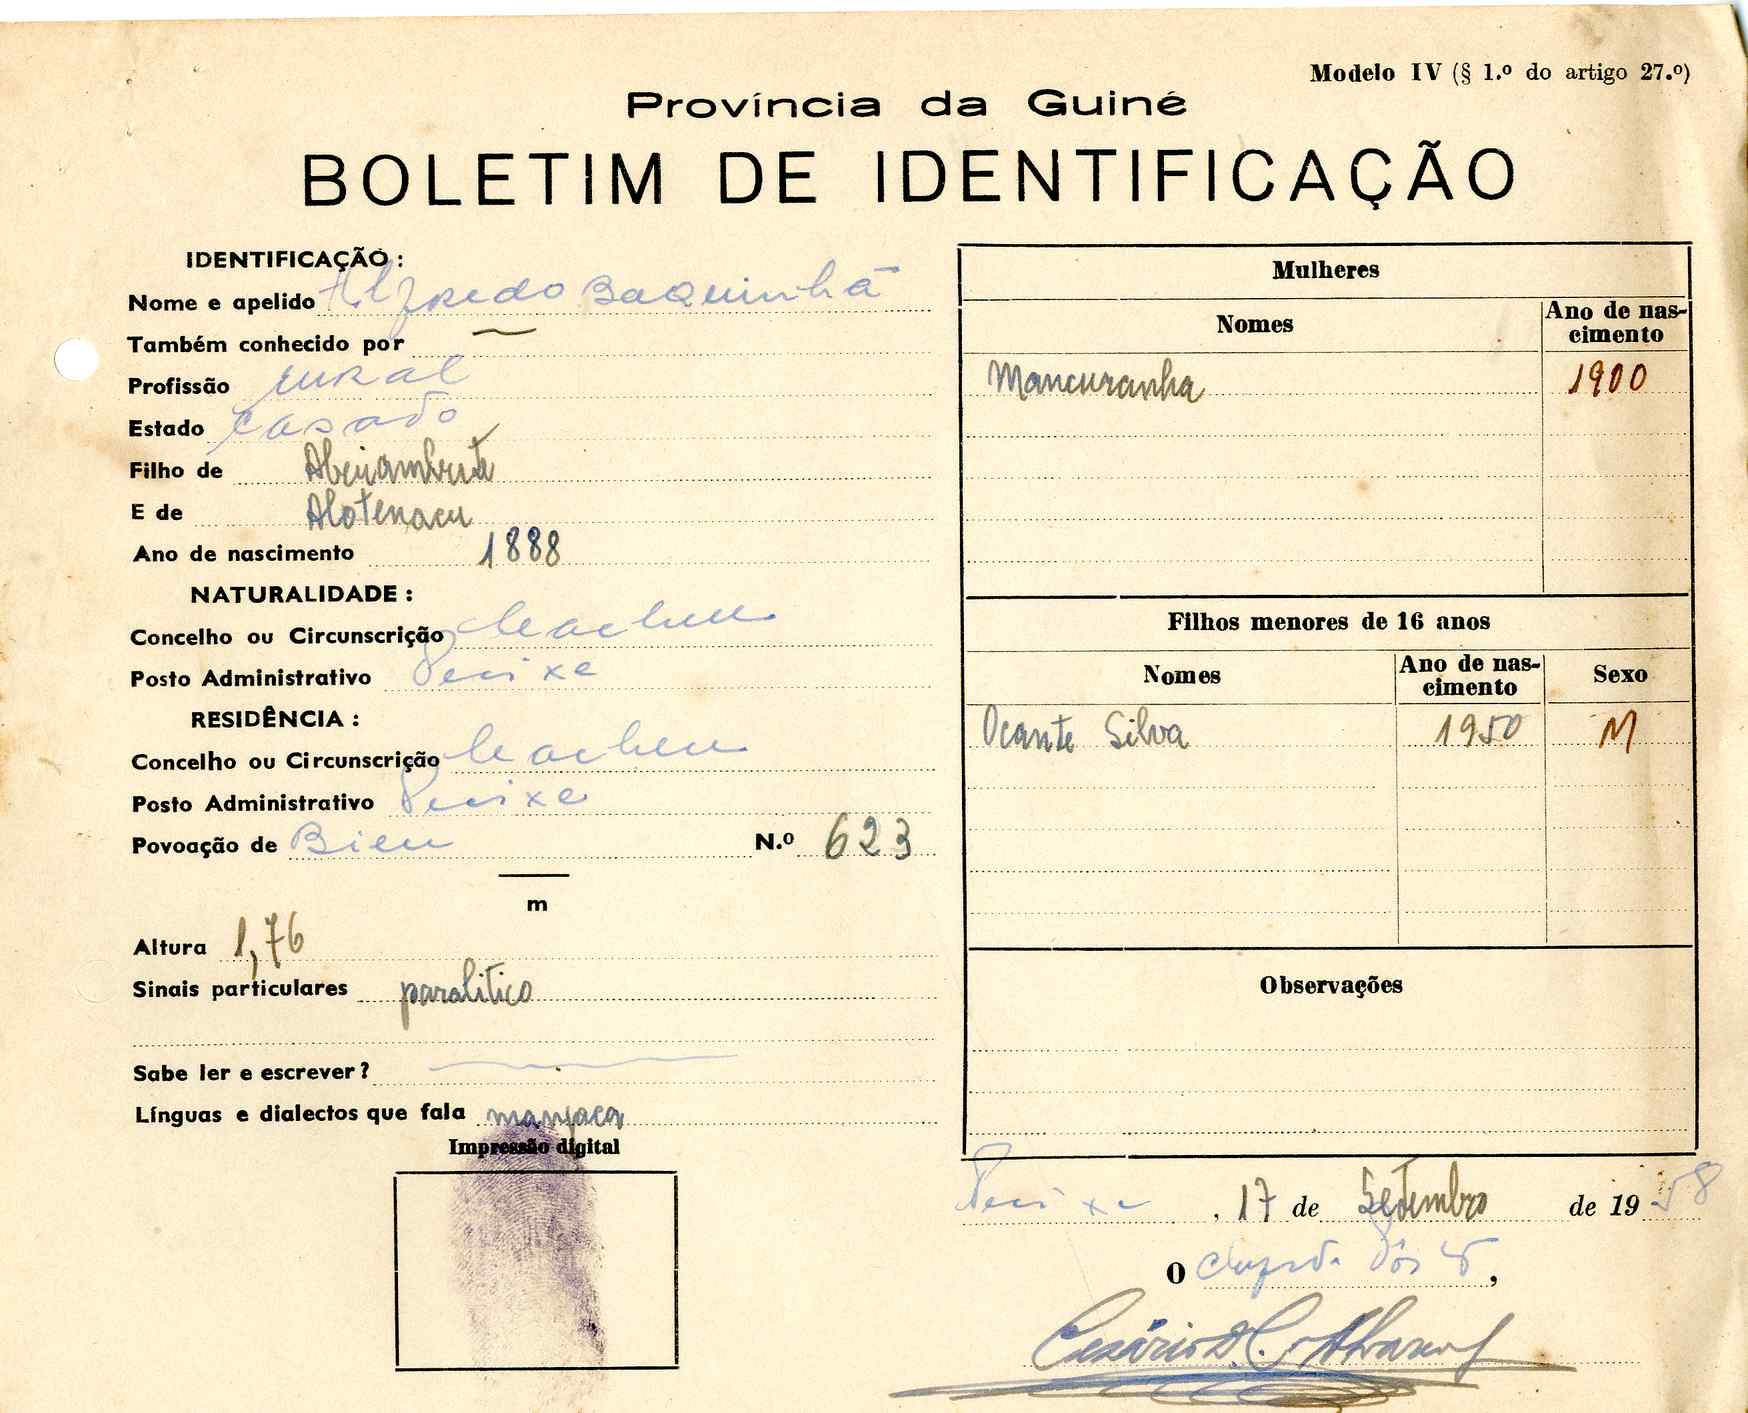 Modelo IV (§ 1.º do artigo 27.º)
Província da Guiné
BOLETIM DE IDENTIFICAÇÃO
IDENTIFICAÇÃO :
Nome e apelido Alfredo Baquinhã
Também conhecido por —
Profissão rural
Estado casado
Filho de
E de
Ano de nascimento 1888
NATURALIDADE :
Concelho ou Circunscrição Cacheu
Posto Administrativo Pecixe
RESIDÊNCIA :
Concelho ou Circunscrição Cacheu
Posto Administrativo Pecixe
Povoação de Bieu N.º 623
m
Altura 1,76
Sinais particulares paralitico
Sabe ler e escrever? —
Línguas e dialectos que fala manjaca
Impressão digital
Mulheres
Nomes Ano de nas-
cimento
Mancuranha 1900
Filhos menores de 16 anos
Nomes Ano de nas-
cimento Sexo
Ocante Silva 1950 M
Observações
Pecixe, 17 de Setembro de 1958
O